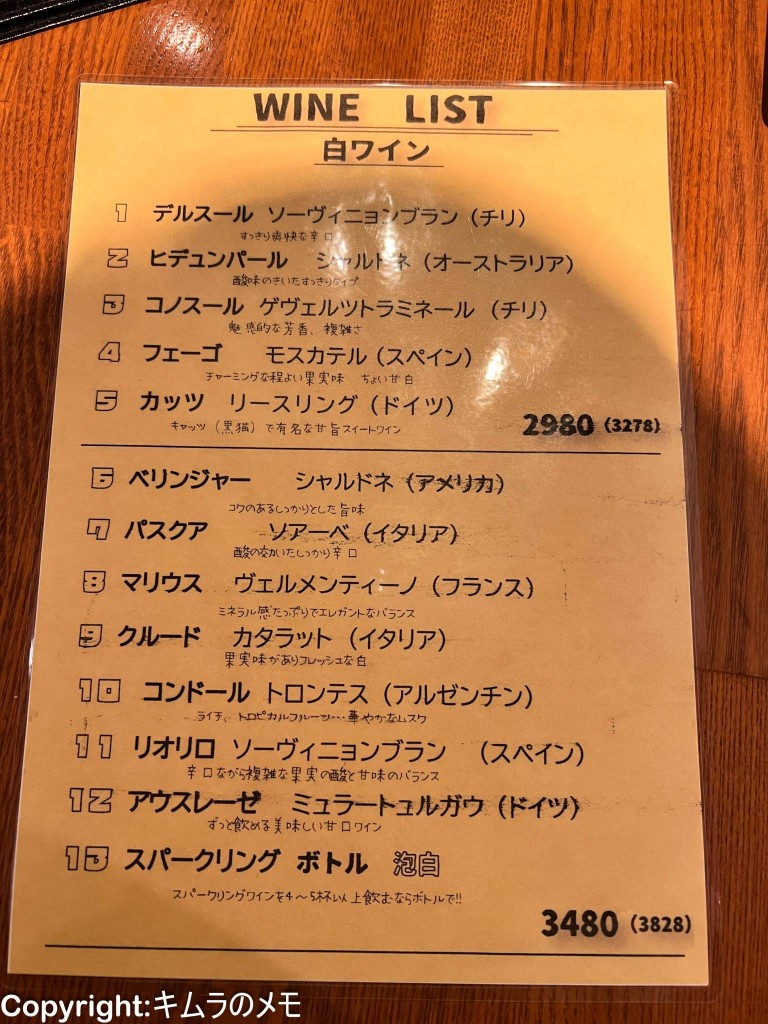 WINE LIST
白ワイン
1 デルスール ソーヴィニョンブラン（チリ）
すっきり爽快な辛口
2 ヒデュンパール シャルドネ（オーストラリア）
酸味のきいたすっきりタイプ
3 コノスール ゲヴェルツトラミネール（チリ）
魅惑的な芳香、複雑さ
4 フェーゴ モスカテル（スペイン）
チャーミングな程よい果実味 ちょい甘白
5 カッツ リースリング（ドイツ）
キャッツ（黒猫）で有名な甘旨スイートワイン
2980（3278）
6 ベリンジャー シャルドネ（アメリカ）
コクのあるしっかりとした旨味
7 パスクア ソアーベ（イタリア）
酸の効いたしっかり辛口
8 マリウス ヴェルメンティーノ（フランス）
ミネラル感たっぷりでエレガントなバランス
9 クルード カタラット（イタリア）
果実味がありフレッシュな白
10 コンドール トロンテス（アルゼンチン）
ライチ、トロピカルフルーツ…華やかなムスク
11 リオリロ ソーヴィニョンブラン （スペイン）
辛口ながら複雑な果実の酸と甘味のバランス
12 アウスレーゼ ミュラートュルガウ（ドイツ）
ずっと飲める美味しい甘口ワイン
13 スパークリング ボトル 泡白
スパークリングワインを4～5杯以上飲むならボトルで!!
3480（3828）
Copyright:キムラのメモ